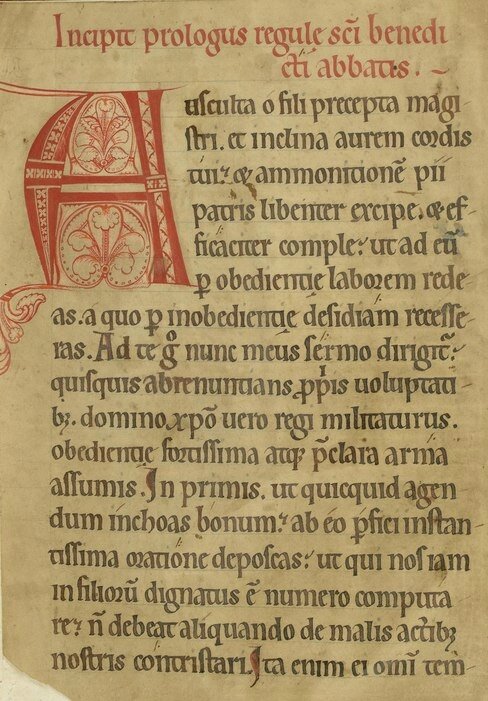 Incipit prologus regulę sc̄i benedi
cti abbatis.
Ausculta o fili precepta magi-
stri. et inclina aurem cordis
tui. & ammonitionē pii
patris libenter excipe. & ef-
ficaciter comple. ut ad eū
ꝑ obedientię laborem rede-
as. a quo ꝑ inobedientię desidiam recesse-
ras. Ad te gͦ nunc meus sermo dirigit.
quisquis abrenuntians ꝓpriis uoluptati-
bꝫ. domino xp̄o uero regi militaturus.
obedientię fortissima atqꝫ p̄clara arma
assumis. In primis. ut quicquid agen
dum inchoas bonum. ab eo ꝑfici instan-
tissima oratione deposcas. ut qui nos iam
in filiorū dignatus ē numero computa
re. n̄ debeat aliquando de malis actibꝫ
nostris contristari. Ita enim ei omī tem-